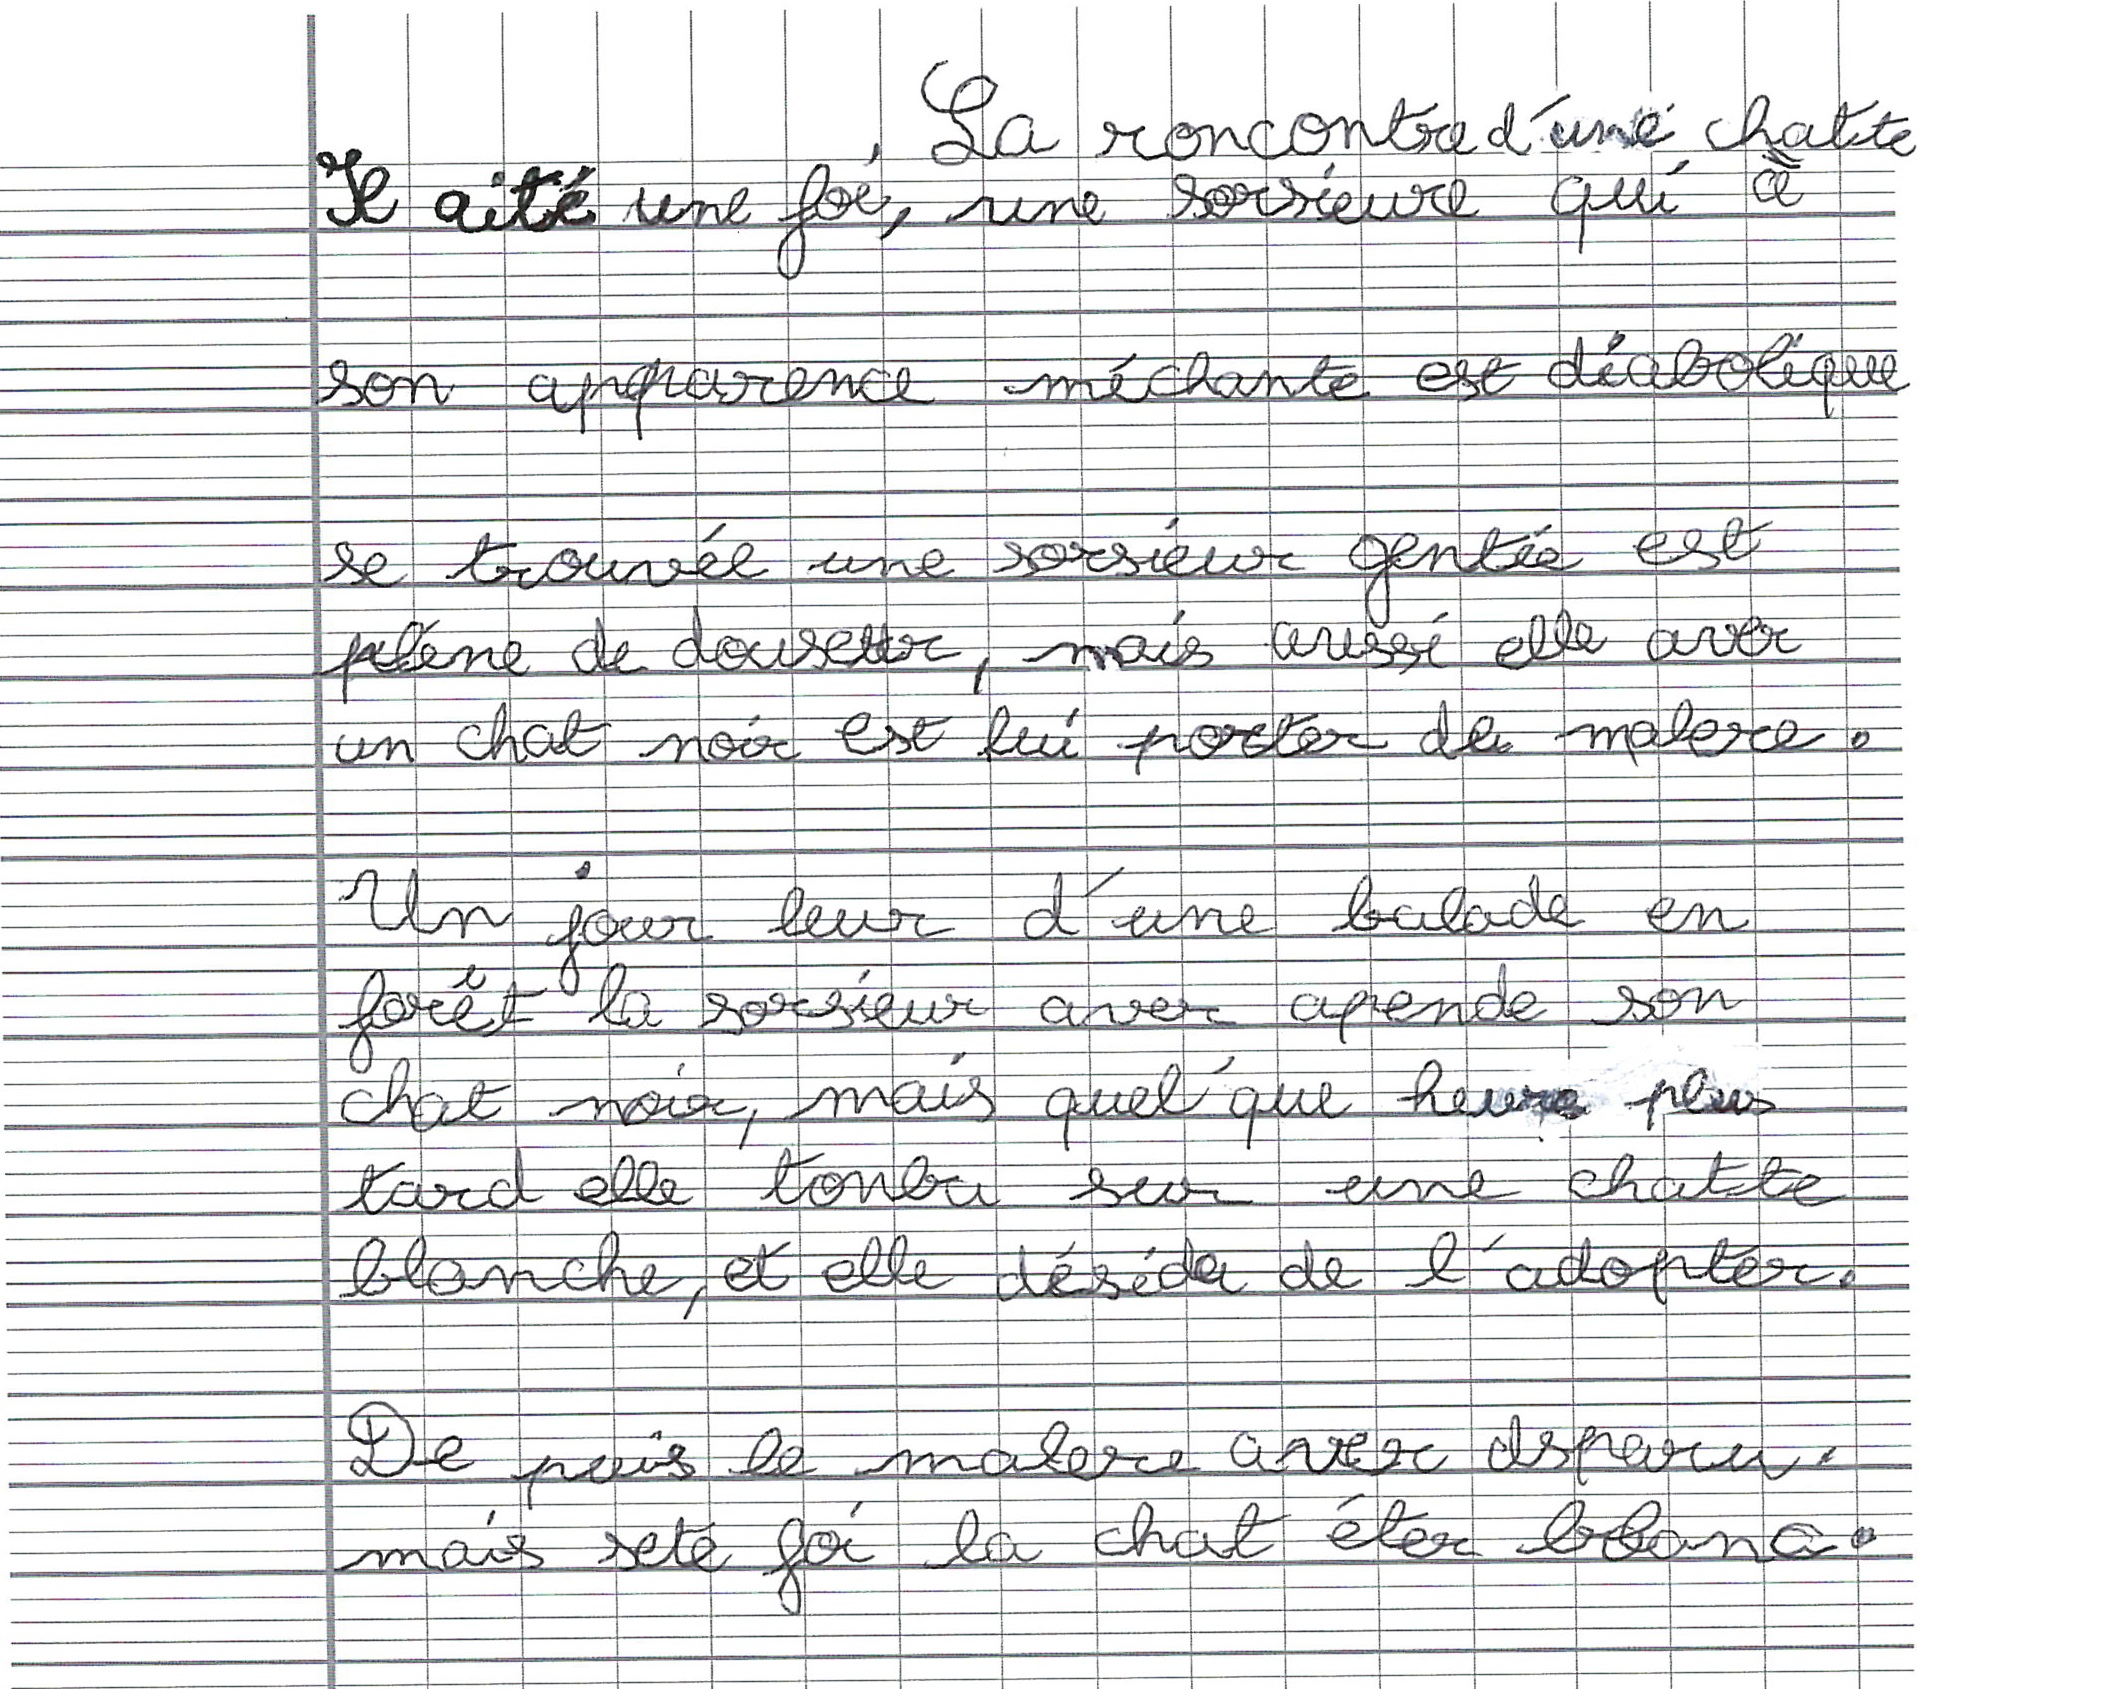 La roncontre d'une chatte
Il aité une foi, une sorsieure qui à
son apparence méchante est diabolique
se trouvée une sorsieur gentie est
pléne de douseur, mais aussi elle aver
un chat noir est lui porter de malere.
Un jour leur d'une balade en
forêt la sorsieur aver apende son
chat noir, mais quel'que heure plus
tard elle tonba sur une chatte
blanche, et elle désida de l'adopter.
De puis le malere aver dsparu.
mais sete foi la chat éter blanc.